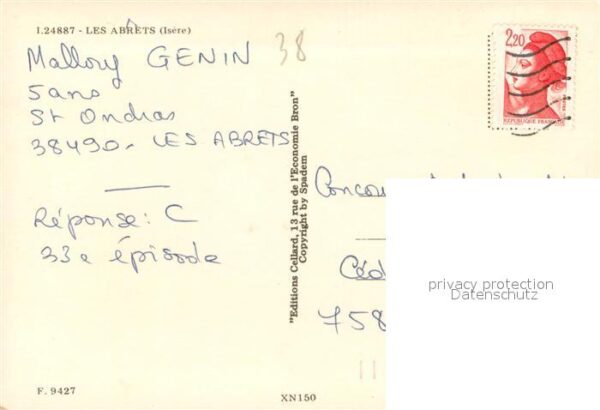 I.24887 - LES ABRETS (Isère)
38
Mallory GENIN
5 ans
St Ondras
38490 - LES ABRETS
Réponse: C
33e épisode
F. 9427
"Editions Cellard, 13 rue de l'Economie Bron"
Copyright by Spadem
XN150
2,20
REPUBLIQUE FRANÇAISE
Concou
Céd
758
privacy protection
Datenschutz